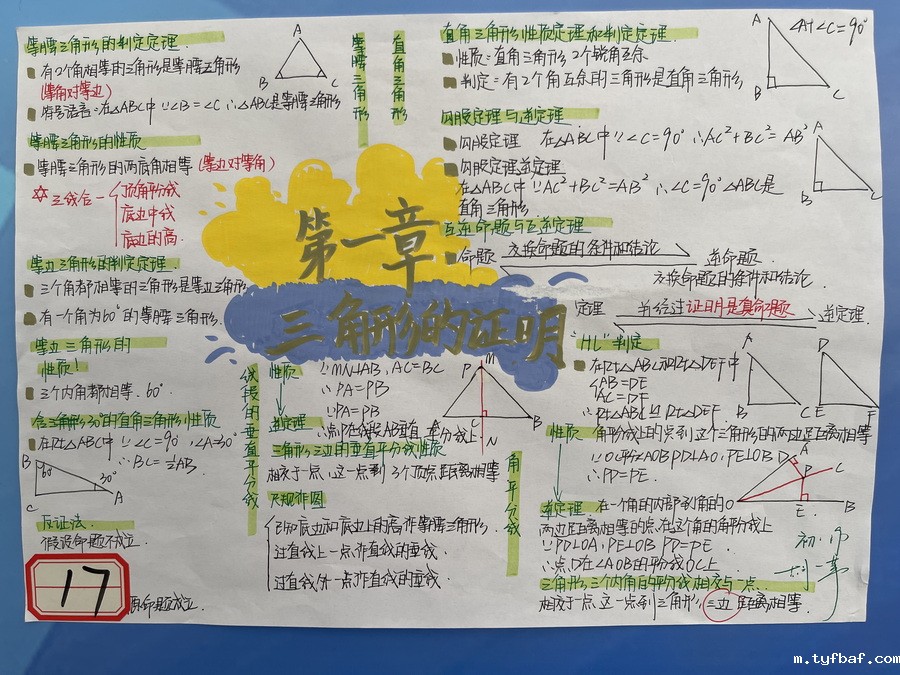 等腰三角形的判定定理.
有2个角相等的三角形是等腰三角形
(等角对等边)
符号语言:在△ABC中∵∠B=∠C∴△ABC是等腰三角形
A
B
C
等腰三角形的性质
等腰三角形的两底角相等(等边对等角)
三线合一
顶角平分线
底边中线
底边的高.
等边三角形的判定定理.
三个角都相等的三角形是等边三角形
有一个角为60°的等腰三角形.
等边三角形的
性质!
三个内角都相等.60°
含三角形30°的直角三角形性质
在Rt△ABC中∵∠C=90°∠A=30°
∴BC=½AB.
B
60°
30°
C
A
反证法.
假设命题不成立.
17
原命题成立.
等腰三角形
直角三角形
第一章
三角形的证明
线段的垂直平分线
性质
∵MN⊥AB,AC=BC
∴PA=PB
逆定理
∵PA=PB
∴点P在线段AB垂直平分线上
三角形三边的垂直平分线性质
相交于一点,这一点到3个顶点距离相等
尺规作图
已知底边和底边上的高,作等腰三角形.
过直线上一点作直线的垂线.
过直线外一点作直线的垂线.
M
P
A
C
B
N
角平分线
直角三角形性质定理和判定定理.
性质=直角三角形2个锐角互余
判定=有2个角互余的三角形是直角三角形
A
∠A+∠C=90°
B
C
勾股定理与逆定理
勾股定理 在△ABC中∵∠C=90°∴AC²+BC²=AB²
勾股定理逆定理
在△ABC中∵AC²+BC²=AB²∴∠C=90°△ABC是
直角三角形
A
B
C
互逆命题与互逆定理
命题 交换命题的条件和结论 逆命题.
交换命题的条件和结论.
定理 当经过证明是真命题 逆定理.
"HL"判定
在Rt△ABC和Rt△DEF中
AB=DE
AC=DF
∴Rt△ABC≌Rt△DEF
A
B
C
D
E
F
性质 角平分线上的点到这个三角形的两边距离相等
∵OC平分∠AOB PD⊥AO,PE⊥OB
∴PD=PE.
A
D
C
P
O
E
B
逆定理.在一个角的内部到角的
两边距离相等的点,在这个角的角平分线上
∵PD⊥OA,PE⊥OB PD=PE.
∴点P在∠AOB的平分线OC上
三角形三个内角的平分线相交与一点
相交于一点,这一点到三角形三边距离相等.
m.tyfbaf.com